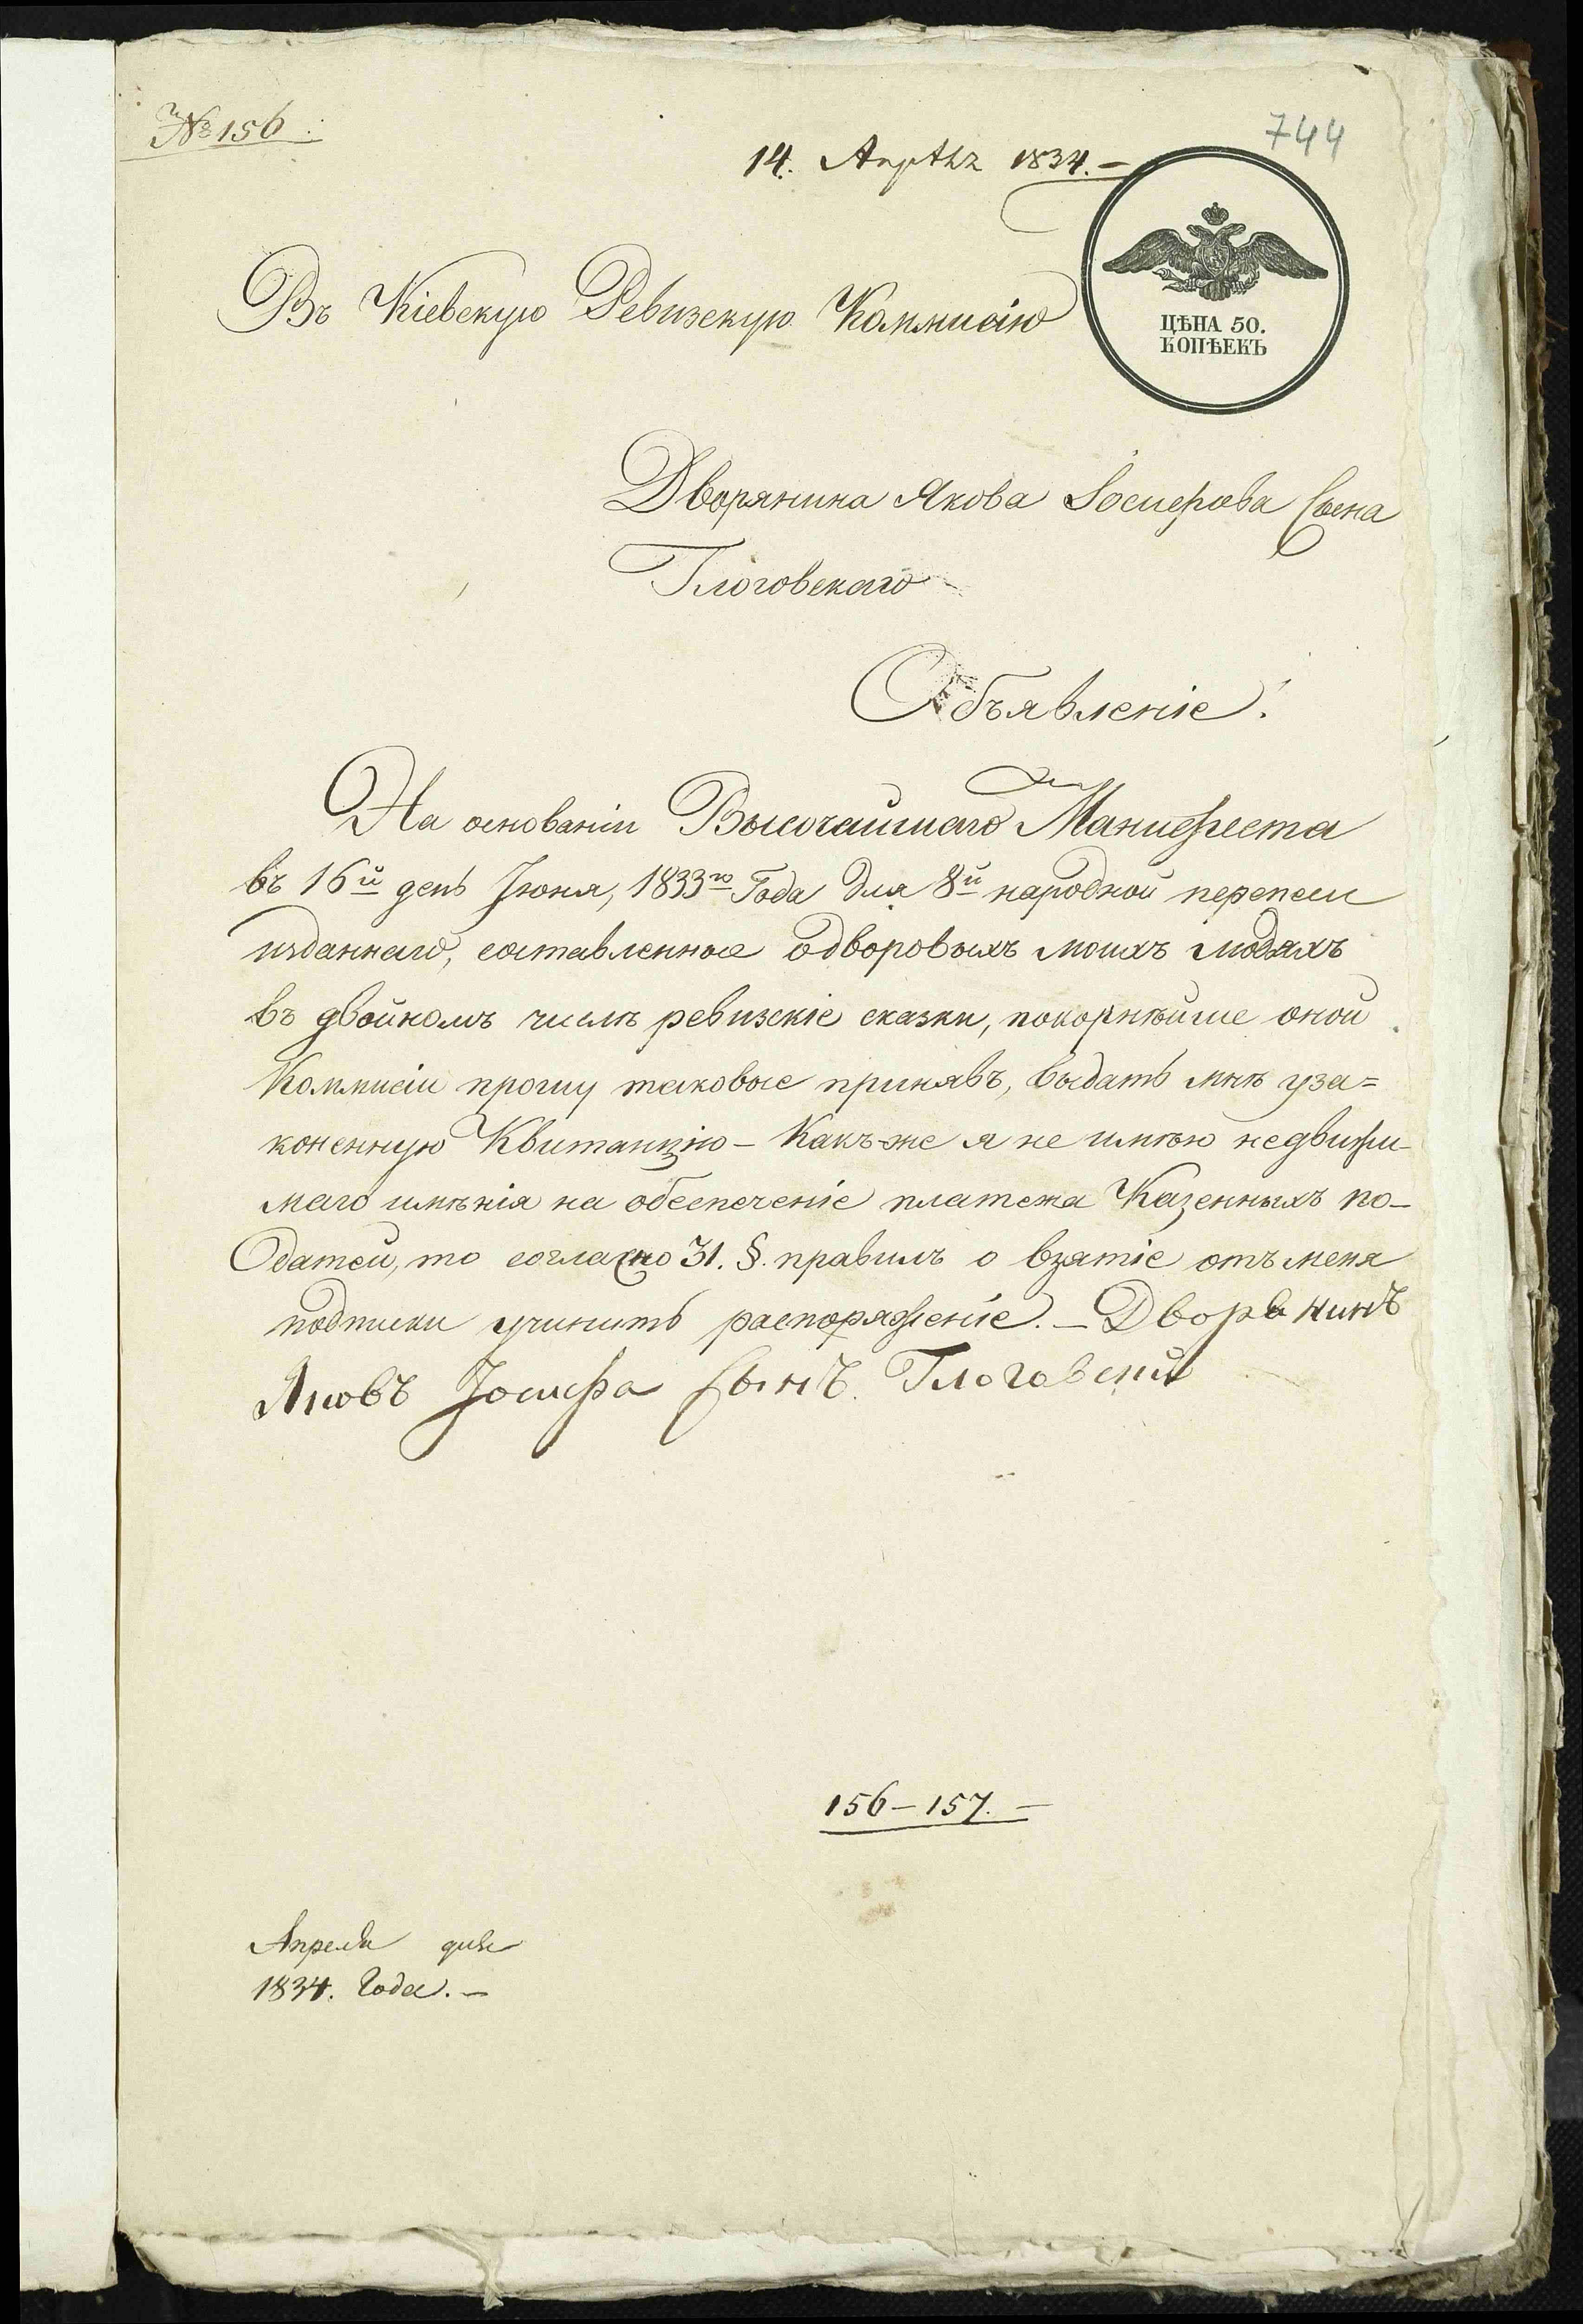 № 156.
744
14. Апрѣля 1834.
ЦѢНА 50.
КОПѢЕКЪ
Въ Кіевскую Ревизскую Коммисію
Дворянина Якова Іосифова Сына
Глоговскаго
Объявленіе.
На основаніи Высочайшаго Манифеста
въ 16й день Іюня, 1833го Года для 8й народной переписи
изданнаго, составленные одворовыхъ моихъ людяхъ
въ двойномъ числѣ ревизскіе сказки, покорнѣйше оной
Коммисіи прошу таковые принявъ, выдать мнѣ уза=
коненную Квитанцію – Какъ-же я не имѣю недвижи-
маго имѣнія на обеспеченіе платежа Казенныхъ по-
датей, то согласно 31. §. правилъ о взятіе отъ меня
подписки учинить распоряженіе. – Дворянинъ
Яковъ Іосифа Сынъ Глоговский
156–157. –
Апреля дня
1834. Года. –